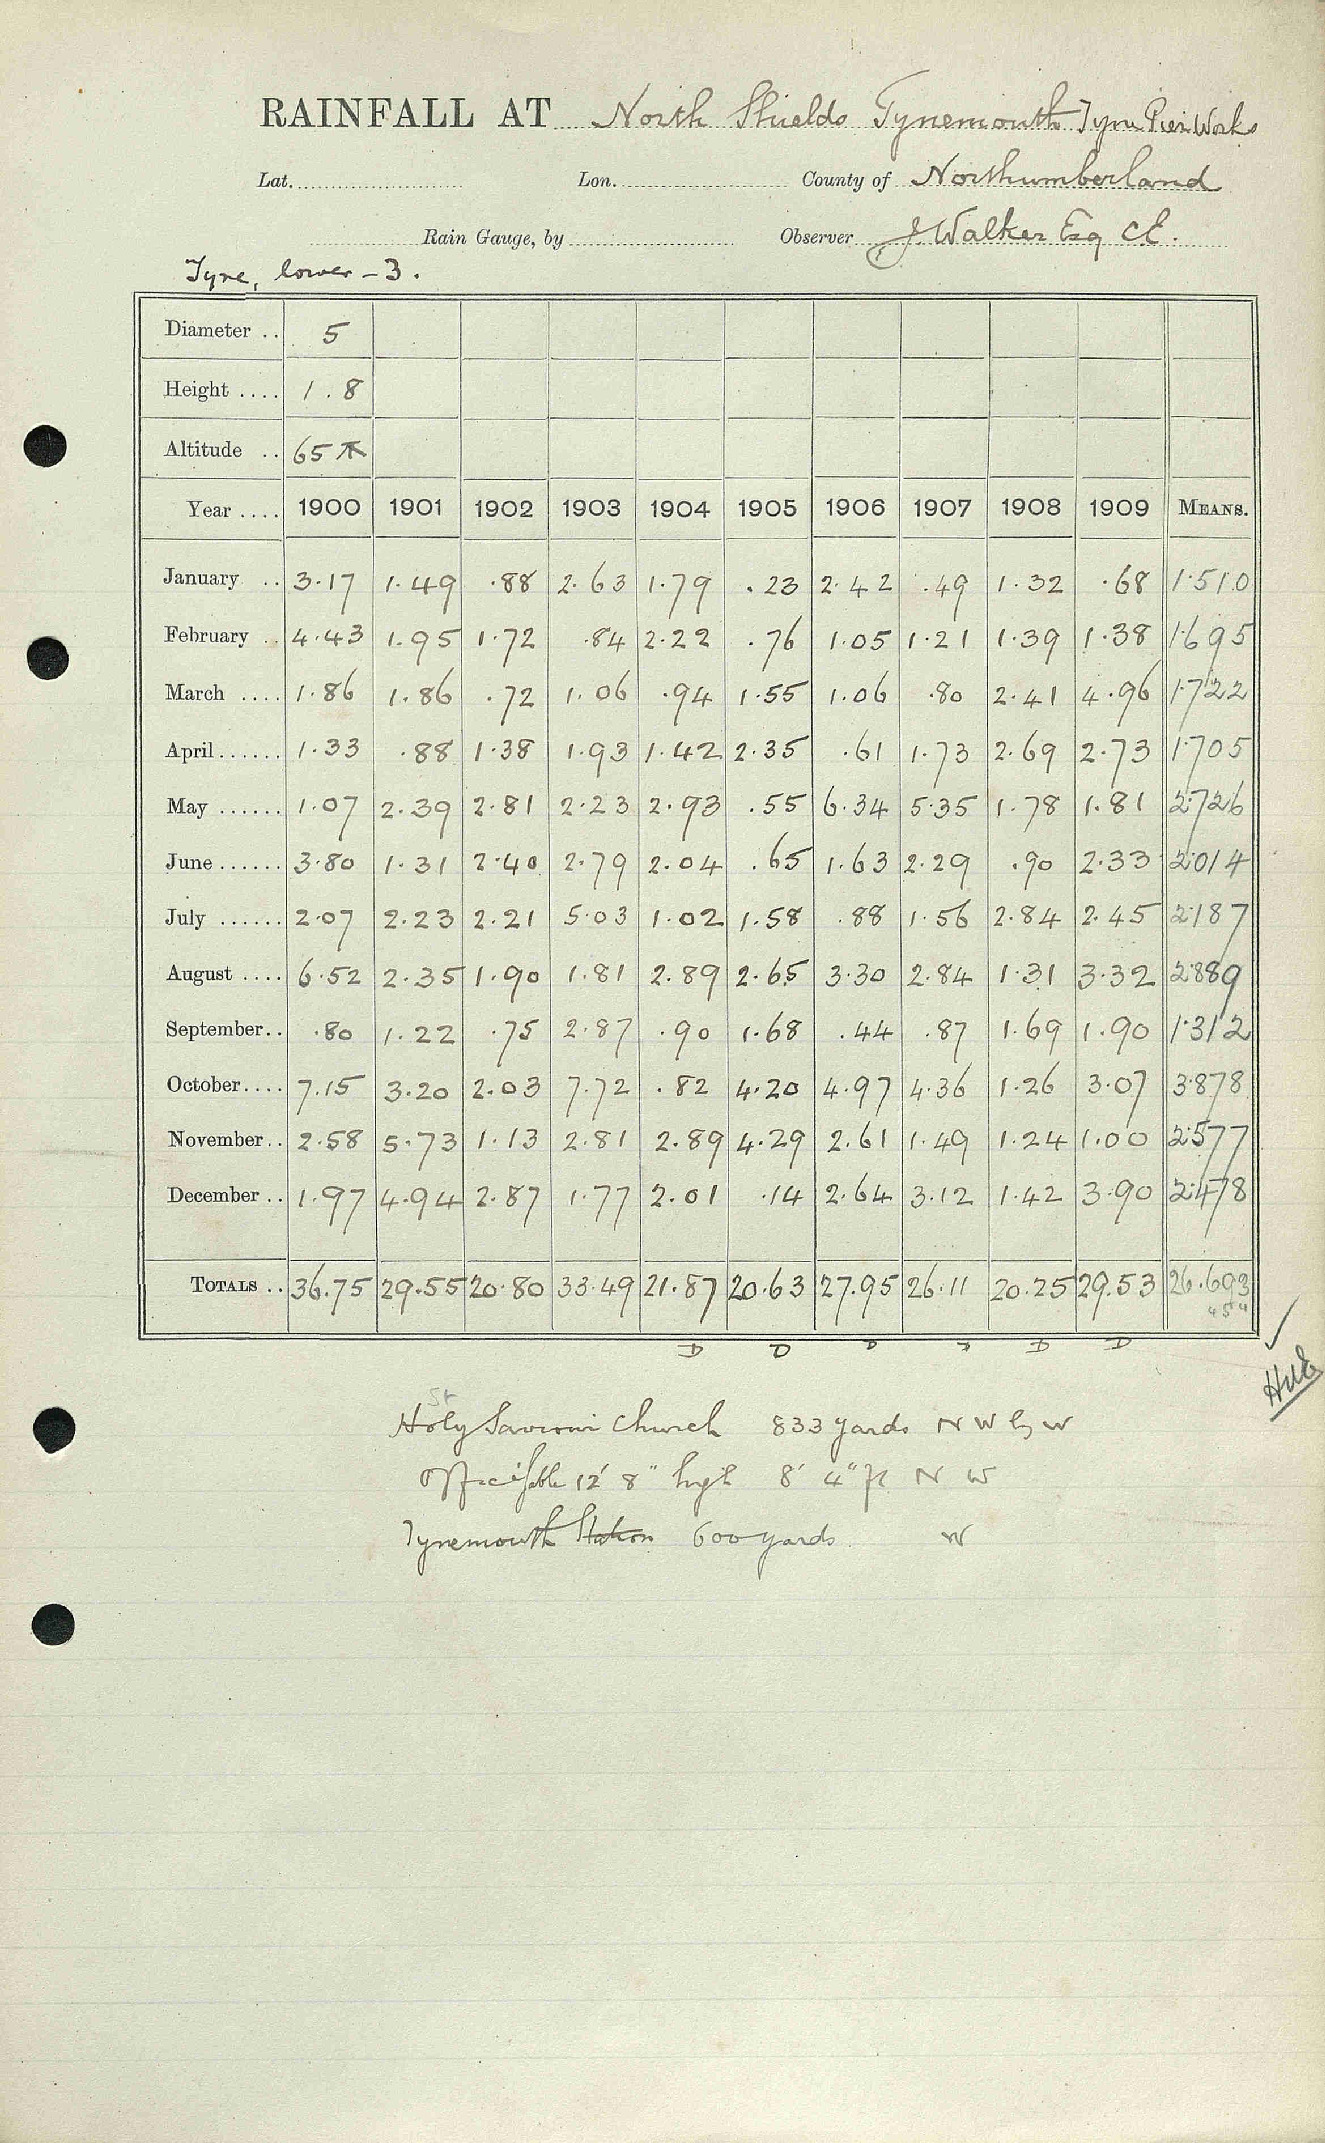 RAINFALL AT North Shields Tynemouth Tyne Pier Works
Lat. Lon. County of Northumberland
Rain Gauge, by Observer J Walker Esq CE.
Tyne, lower - 3.
Diameter .. 5
Height .... 1.8
Altitude .. 65
Year .... 1900 1901 1902 1903 1904 1905 1906 1907 1908 1909 MEANS.
January .. 3.17 1.49 .88 2.63 1.79 .23 2.42 .49 1.32 .68 1.510
February .. 4.43 1.95 1.72 .84 2.22 .76 1.05 1.21 1.39 1.38 1.695
March .... 1.86 1.86 .72 1.06 .94 1.55 1.06 .80 2.41 4.96 1.722
April ...... 1.33 .88 1.38 1.93 1.42 2.35 .61 1.73 2.69 2.73 1.705
May ...... 1.07 2.39 2.81 2.23 2.93 .55 6.34 5.35 1.78 1.81 2.726
June ...... 3.80 1.31 2.40 2.79 2.04 .65 1.63 2.29 .90 2.33 2.014
July ...... 2.07 2.23 2.21 5.03 1.02 1.58 .88 1.56 2.84 2.45 2.187
August .... 6.52 2.35 1.90 1.81 2.89 2.65 3.30 2.84 1.31 3.32 2.889
September .. .80 1.22 .75 2.87 .90 1.68 .44 .87 1.69 1.90 1.312
October .... 7.15 3.20 2.03 7.72 .82 4.20 4.97 4.36 1.26 3.07 3.878
November .. 2.58 5.73 1.13 2.81 2.89 4.29 2.61 1.49 1.24 1.00 2.577
December .. 1.97 4.94 2.87 1.77 2.01 .14 2.64 3.12 1.42 3.90 2.478
TOTALS .. 36.75 29.55 20.80 33.49 21.87 20.63 27.95 26.11 20.25 29.53 26.693
D D D D D D
St
Holy Saviour Church 833 yards N W by W
12' 8" high 8' 4" N W
Tynemouth Station 600 yards W